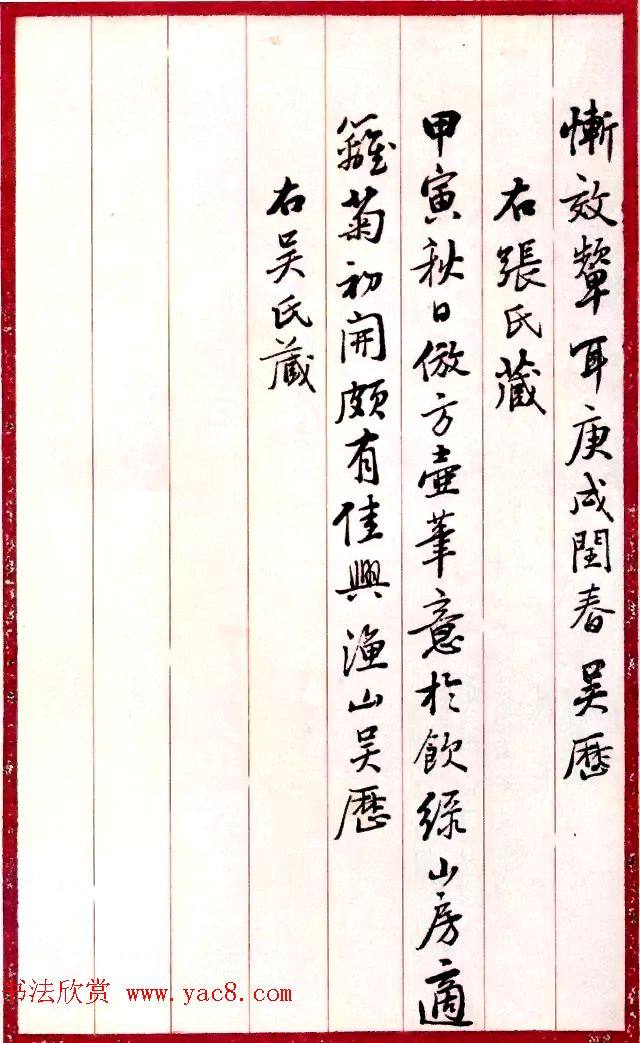 慚效顰耳庚戌閏春吴歷
右張氏藏
甲寅秋日倣方壺筆意於飲綠山房適
籬菊初開頗有佳興漁山吴歷
右吴氏藏
书法欣赏 www.yac8.com